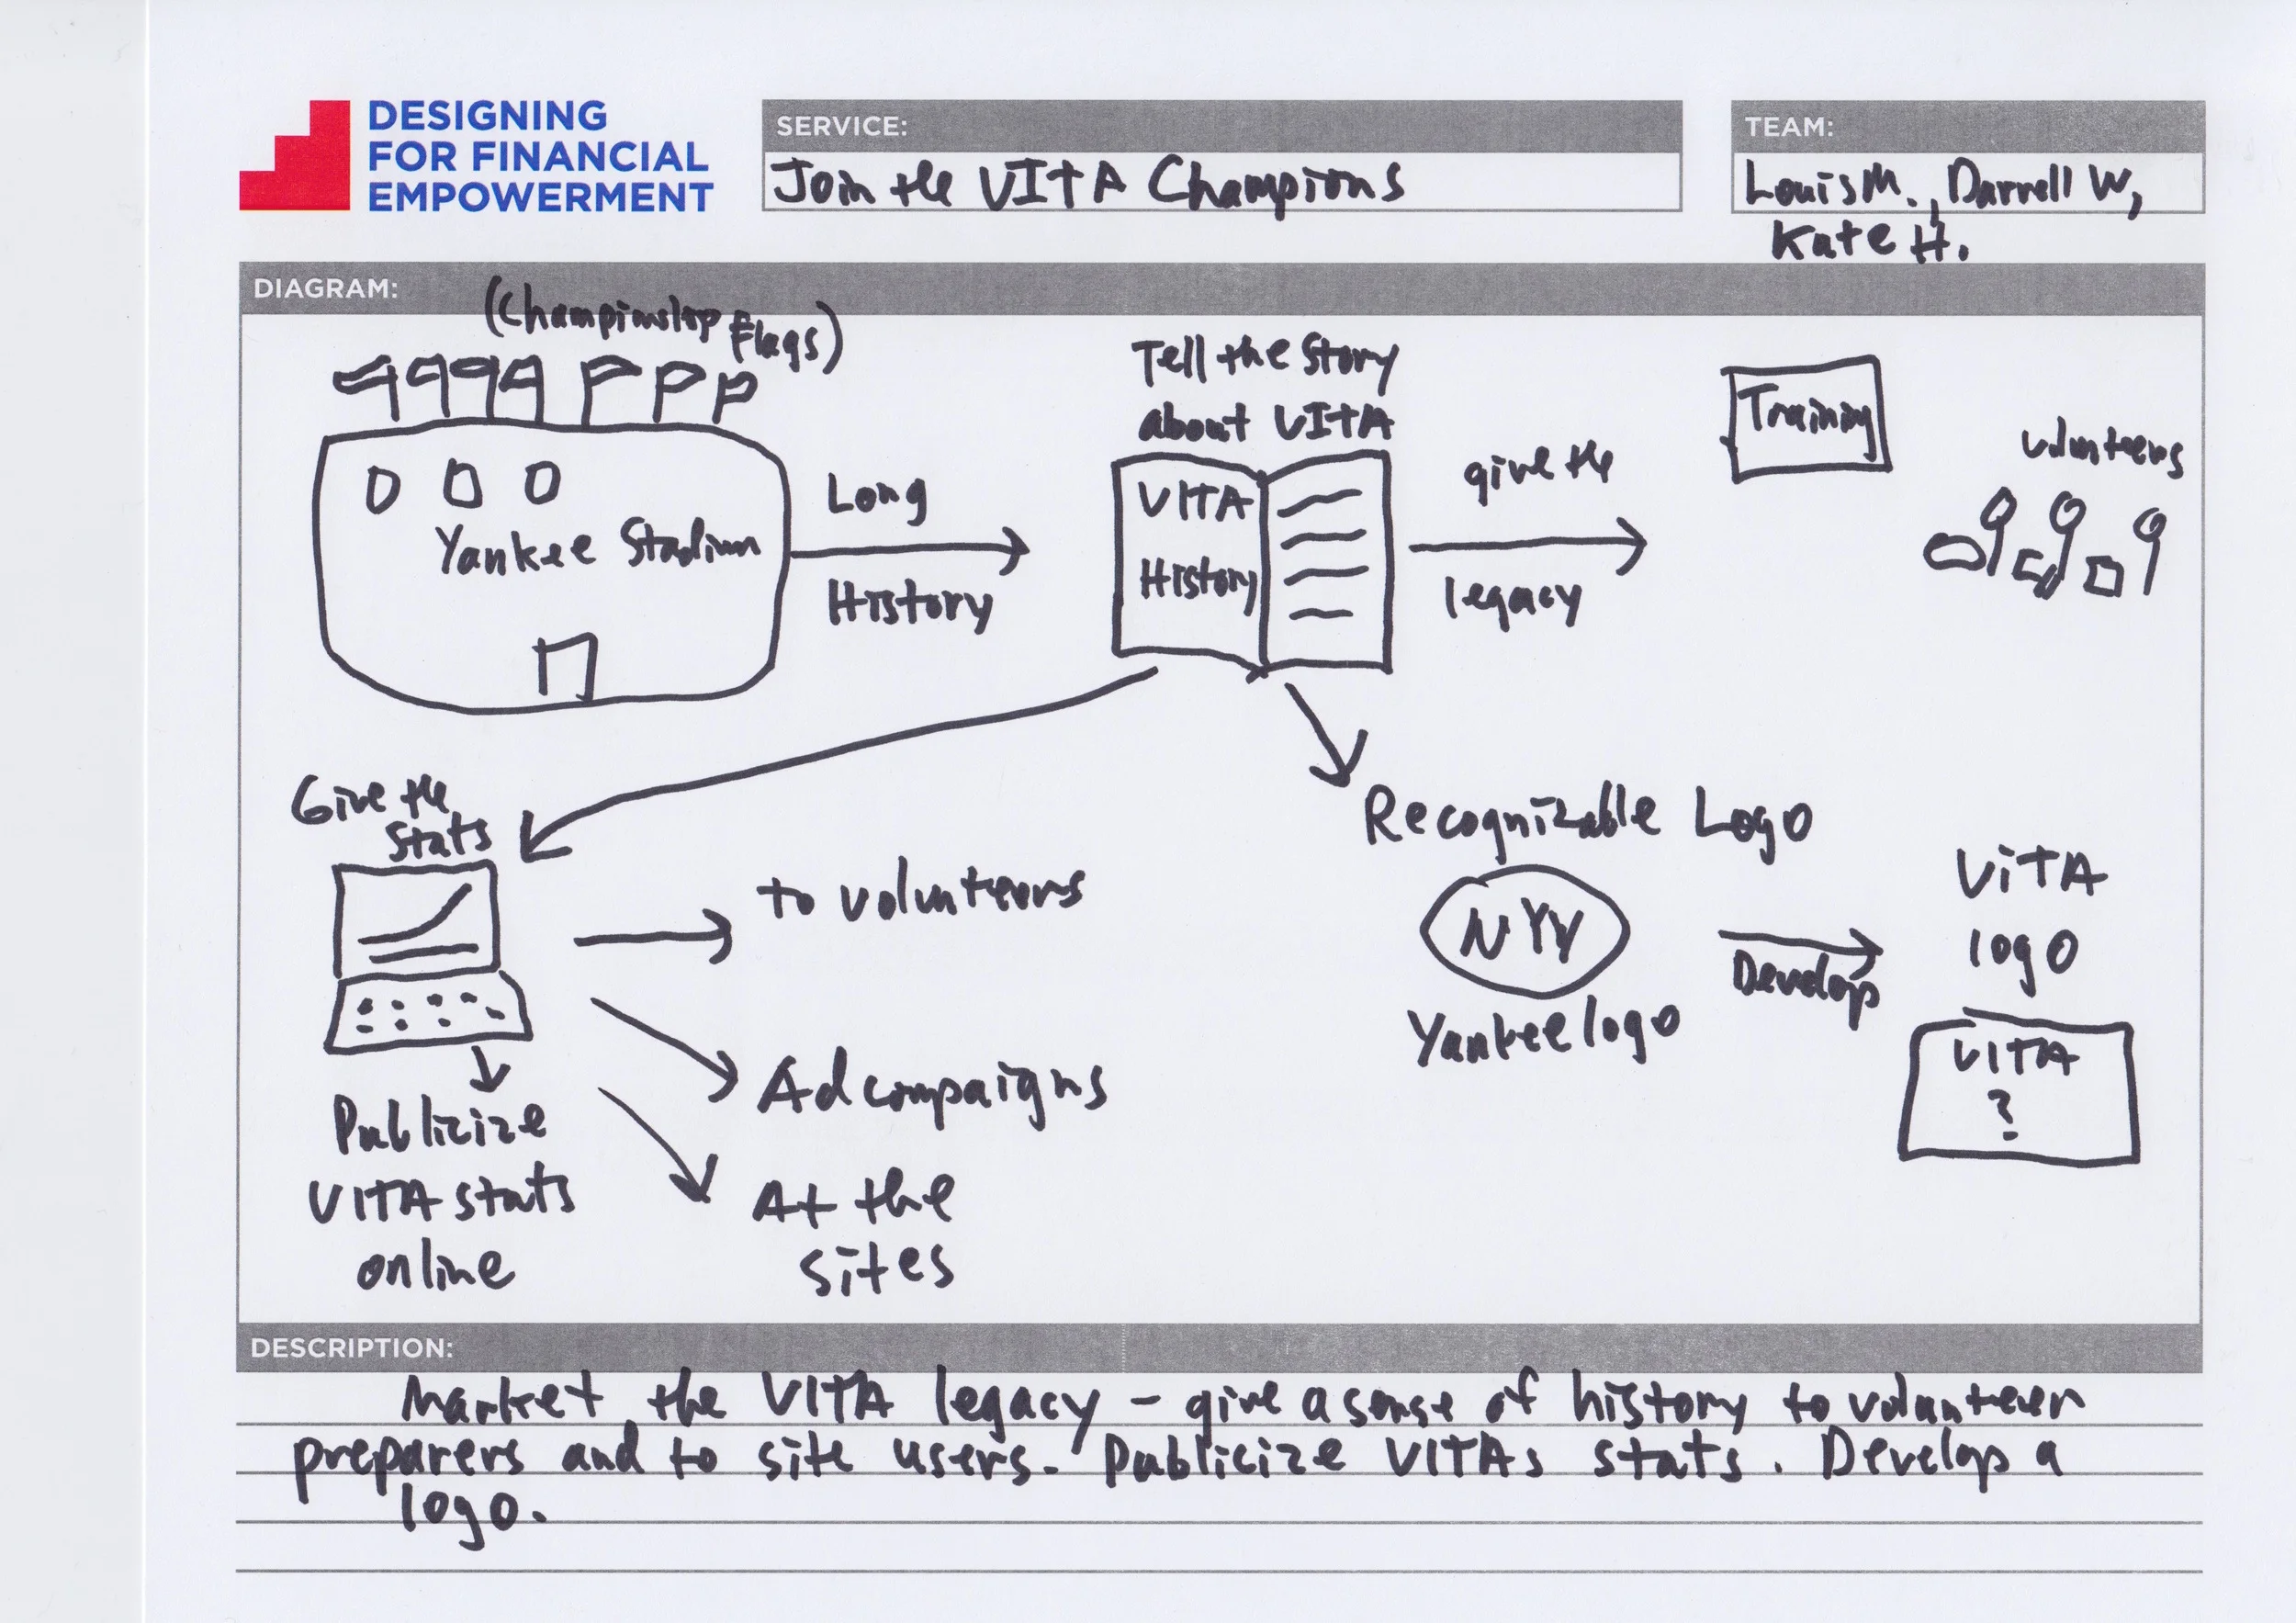 DESIGNING
FOR FINANCIAL
EMPOWERMENT
SERVICE:
Join the VITA Champions
TEAM:
Louis M., Darrell W,
Kate H.
DIAGRAM:
(Championship Flags)
Yankee Stadium
Long
History
Tell the story
about VITA
VITA
History
give the
legacy
Training
volunteers
Give the
stats
to volunteers
Ad campaigns
At the
sites
Publicize
VITA stats
online
Recognizable Logo
NYY
Yankee logo
Develop
VITA
logo
VITA
?
DESCRIPTION:
Market the VITA legacy - give a sense of history to volunteer
preparers and to site users. Publicize VITAs stats. Develop a
logo.